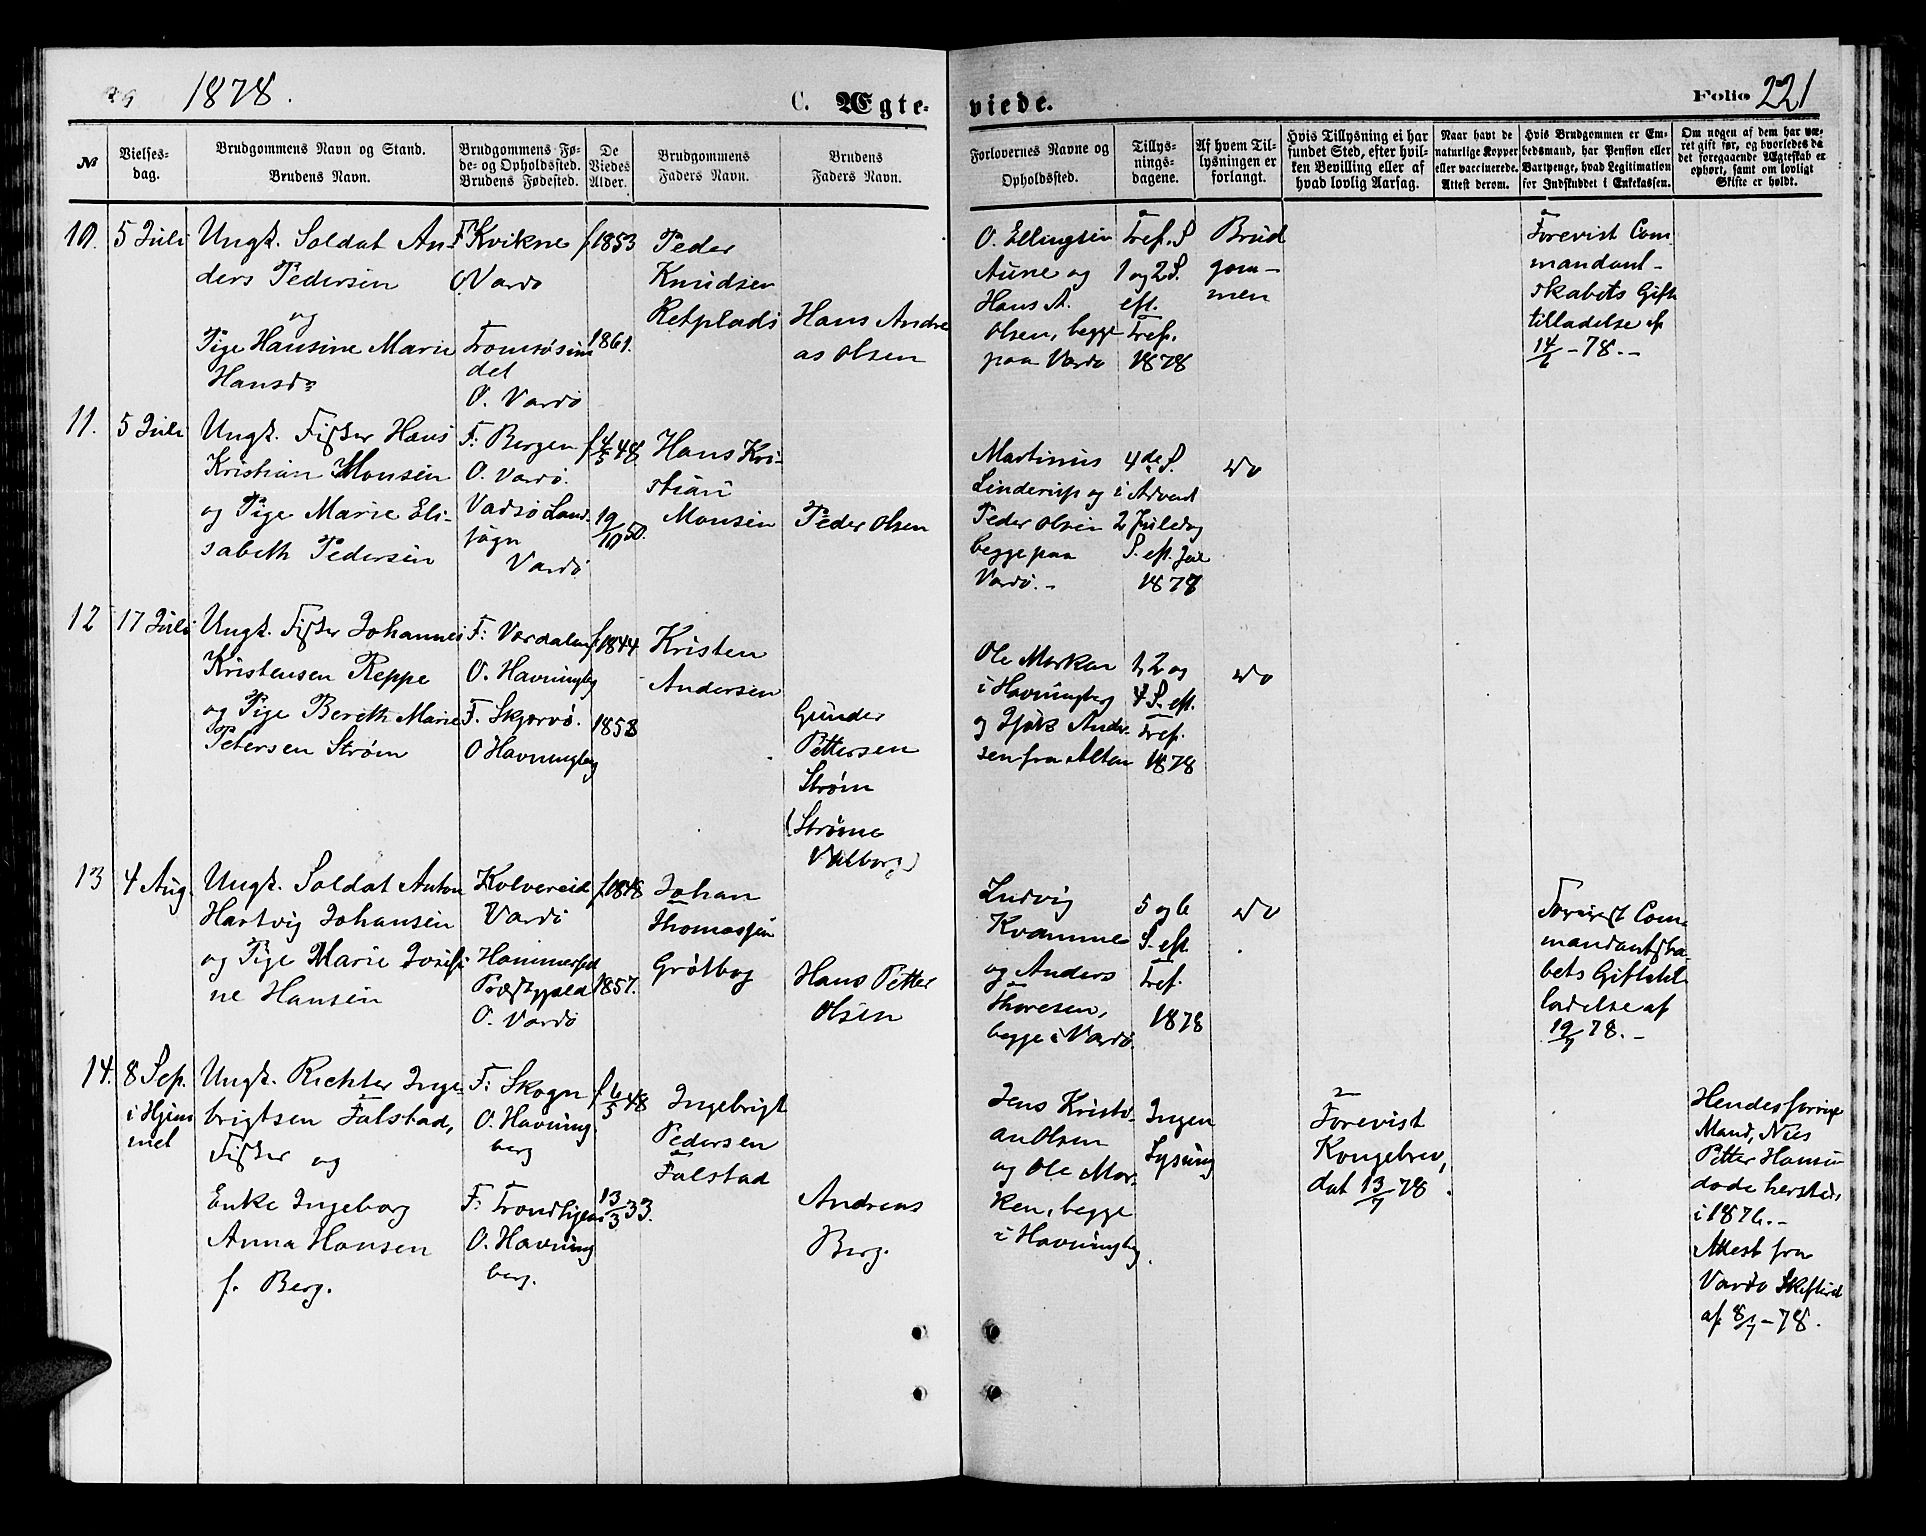 1878.
C. Ægteviede.
Folio 221
№
Vielsesdag.
Brudgommens Navn og Stand.
Brudens Navn.
Brudgommens Føde- og Opholdssted.
Brudens Fødested.
De Viedes Alder.
Brudgommens Faders Navn.
Brudens Faders Navn.
Forlovernes Navne og Opholdssted.
Tillysningsdagene.
Af hvem Tillysningen er forlangt.
Hvis Tillysning ei har fundet Sted, efter hvilken Bevilling eller af hvad lovlig Aarsag.
Naar havt de naturlige Kopper eller vaccinerede. Attest derom.
Hvis Brudgommen er Embedsmand, har Pension eller Vartpenge, hvad Legitimation for Indskuddet i Enkekassen.
Om nogen af dem har været gift før, og hvorledes da det foregaaende Ægteskab er ophørt, samt om lovligt Skifte er holdt.
10.
5 Juli
Ungk. Soldat An-
ders Pedersen
og
Pige Hansine Marie
Hansdr
F Kvikne
O. Vardø
Tromsøsun
det
O. Vardø
f. 1853
1861.
Peder
Knudsen
Retplads
Hans Andre
as Olsen
O. Ellingsen
Aune og
Hans A.
Olsen, begge
paa Vardø
Tref. S
1 og 2 S.
eft.
Tref.
1878
Brud
gom-
men
Forevist Com
mandant-
skabets Gifte
tilladelse af
14/6 - 78. -
11.
5 Juli
Ungk. Fisker Hans
Kristian Monsen
og Pige Marie Eli-
sabeth Pedersen
F: Bergen
O. Vardø.
Vadsø Land
sogn
Vardø
f 4/5 48
19/10 50.
Hans Kri-
stian
Monsen
Peder Olsen
Martinus
Linderup og
Peder Olsen
begge paa
Vardø. -
4de S.
i Advent
2 Juledag
S. eft. Jul
1877
do
12
17 Juli
Ungk. Fisker Johannes
Kristensen Reppe
og Pige Bereth Marie
Petersen Strøm
F: Værdalen
O. Havningbg
F. Skjervø.
O Havningbg
f. 1844
1858
Kristen
Andersen
Gunder
Pettersen
Strøm
(Strømø
Valborg)
Ole Morken
i Havningberg
og Isak Ander-
sen fra Alten
1, 2 og
4 S. eft.
Tref.
1878
do
13
4 Aug.
Ungk. Soldat Anton
Hartvig Johansen
og Pige Marie Josefi
ne Hansen
Kolvereid
Vardø
Hammerfest
Præstegjeld
O. Vardø
f. 1848
1857.
Johan
Thomassen
Grøtbog
Hans Petter
Olsen
Ludvig
Kvamme
og Anders
Thoresen,
begge i Vardø
5 og 6
S. eft.
Tref.
1878
do
Forevist Com-
mandantska-
bets Giftetil
ladelse af
19/7 78. -
14.
8 Sep.
i Hjem
met
Ungk. Richter Inge
brigtsen Falstad,
Fisker og
Enke Ingeborg
Anna Hansen
f. Berg.
F: Skogn
O. Havning
berg
F: Trondhjem
O. Havning
berg.
f 6/5 48
13/3 33.
Ingebrigt
Pedersen
Falstad
Andreas
Berg.
Jens Kristi
an Olsen
og Ole Mor-
ken, begge
i Havningbg.
Ingen
Lysning
Forevist
Kongebrev,
dat 13/7 78.
Hendes forrige
Mand, Nils
Petter Hansen
døde hersteds
i 1876. -
Attest fra
Vardø Skifteret
af 8/7 - 78.